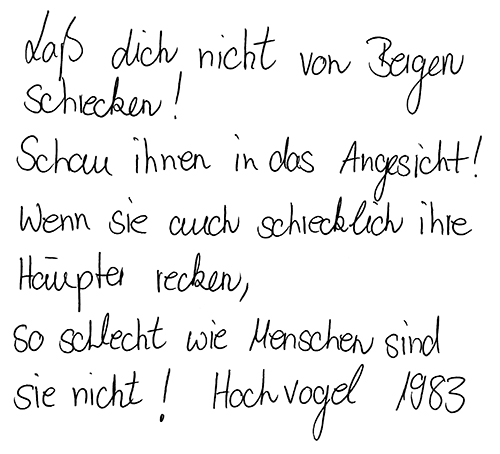 Laß dich nicht von Bergen
schrecken!
Schau ihnen in das Angesicht!
Wenn sie auch schrecklich ihre
Häupter recken,
so schlecht wie Menschen sind
sie nicht! Hochvogel 1983